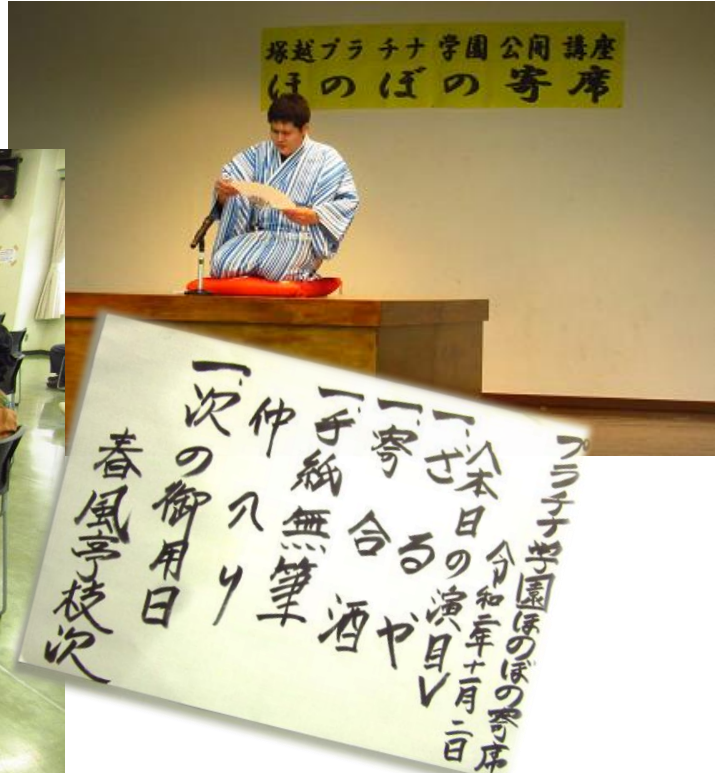 塚越プラチナ学園公開講座
ほのぼの寄席
プラチナ学園ほのぼの寄席
令和二年十一月二日
〈本日の演目〉
一、ざるや
一、寄合酒
一、手紙無筆
仲入り
一、次の御用日
春風亭枝次